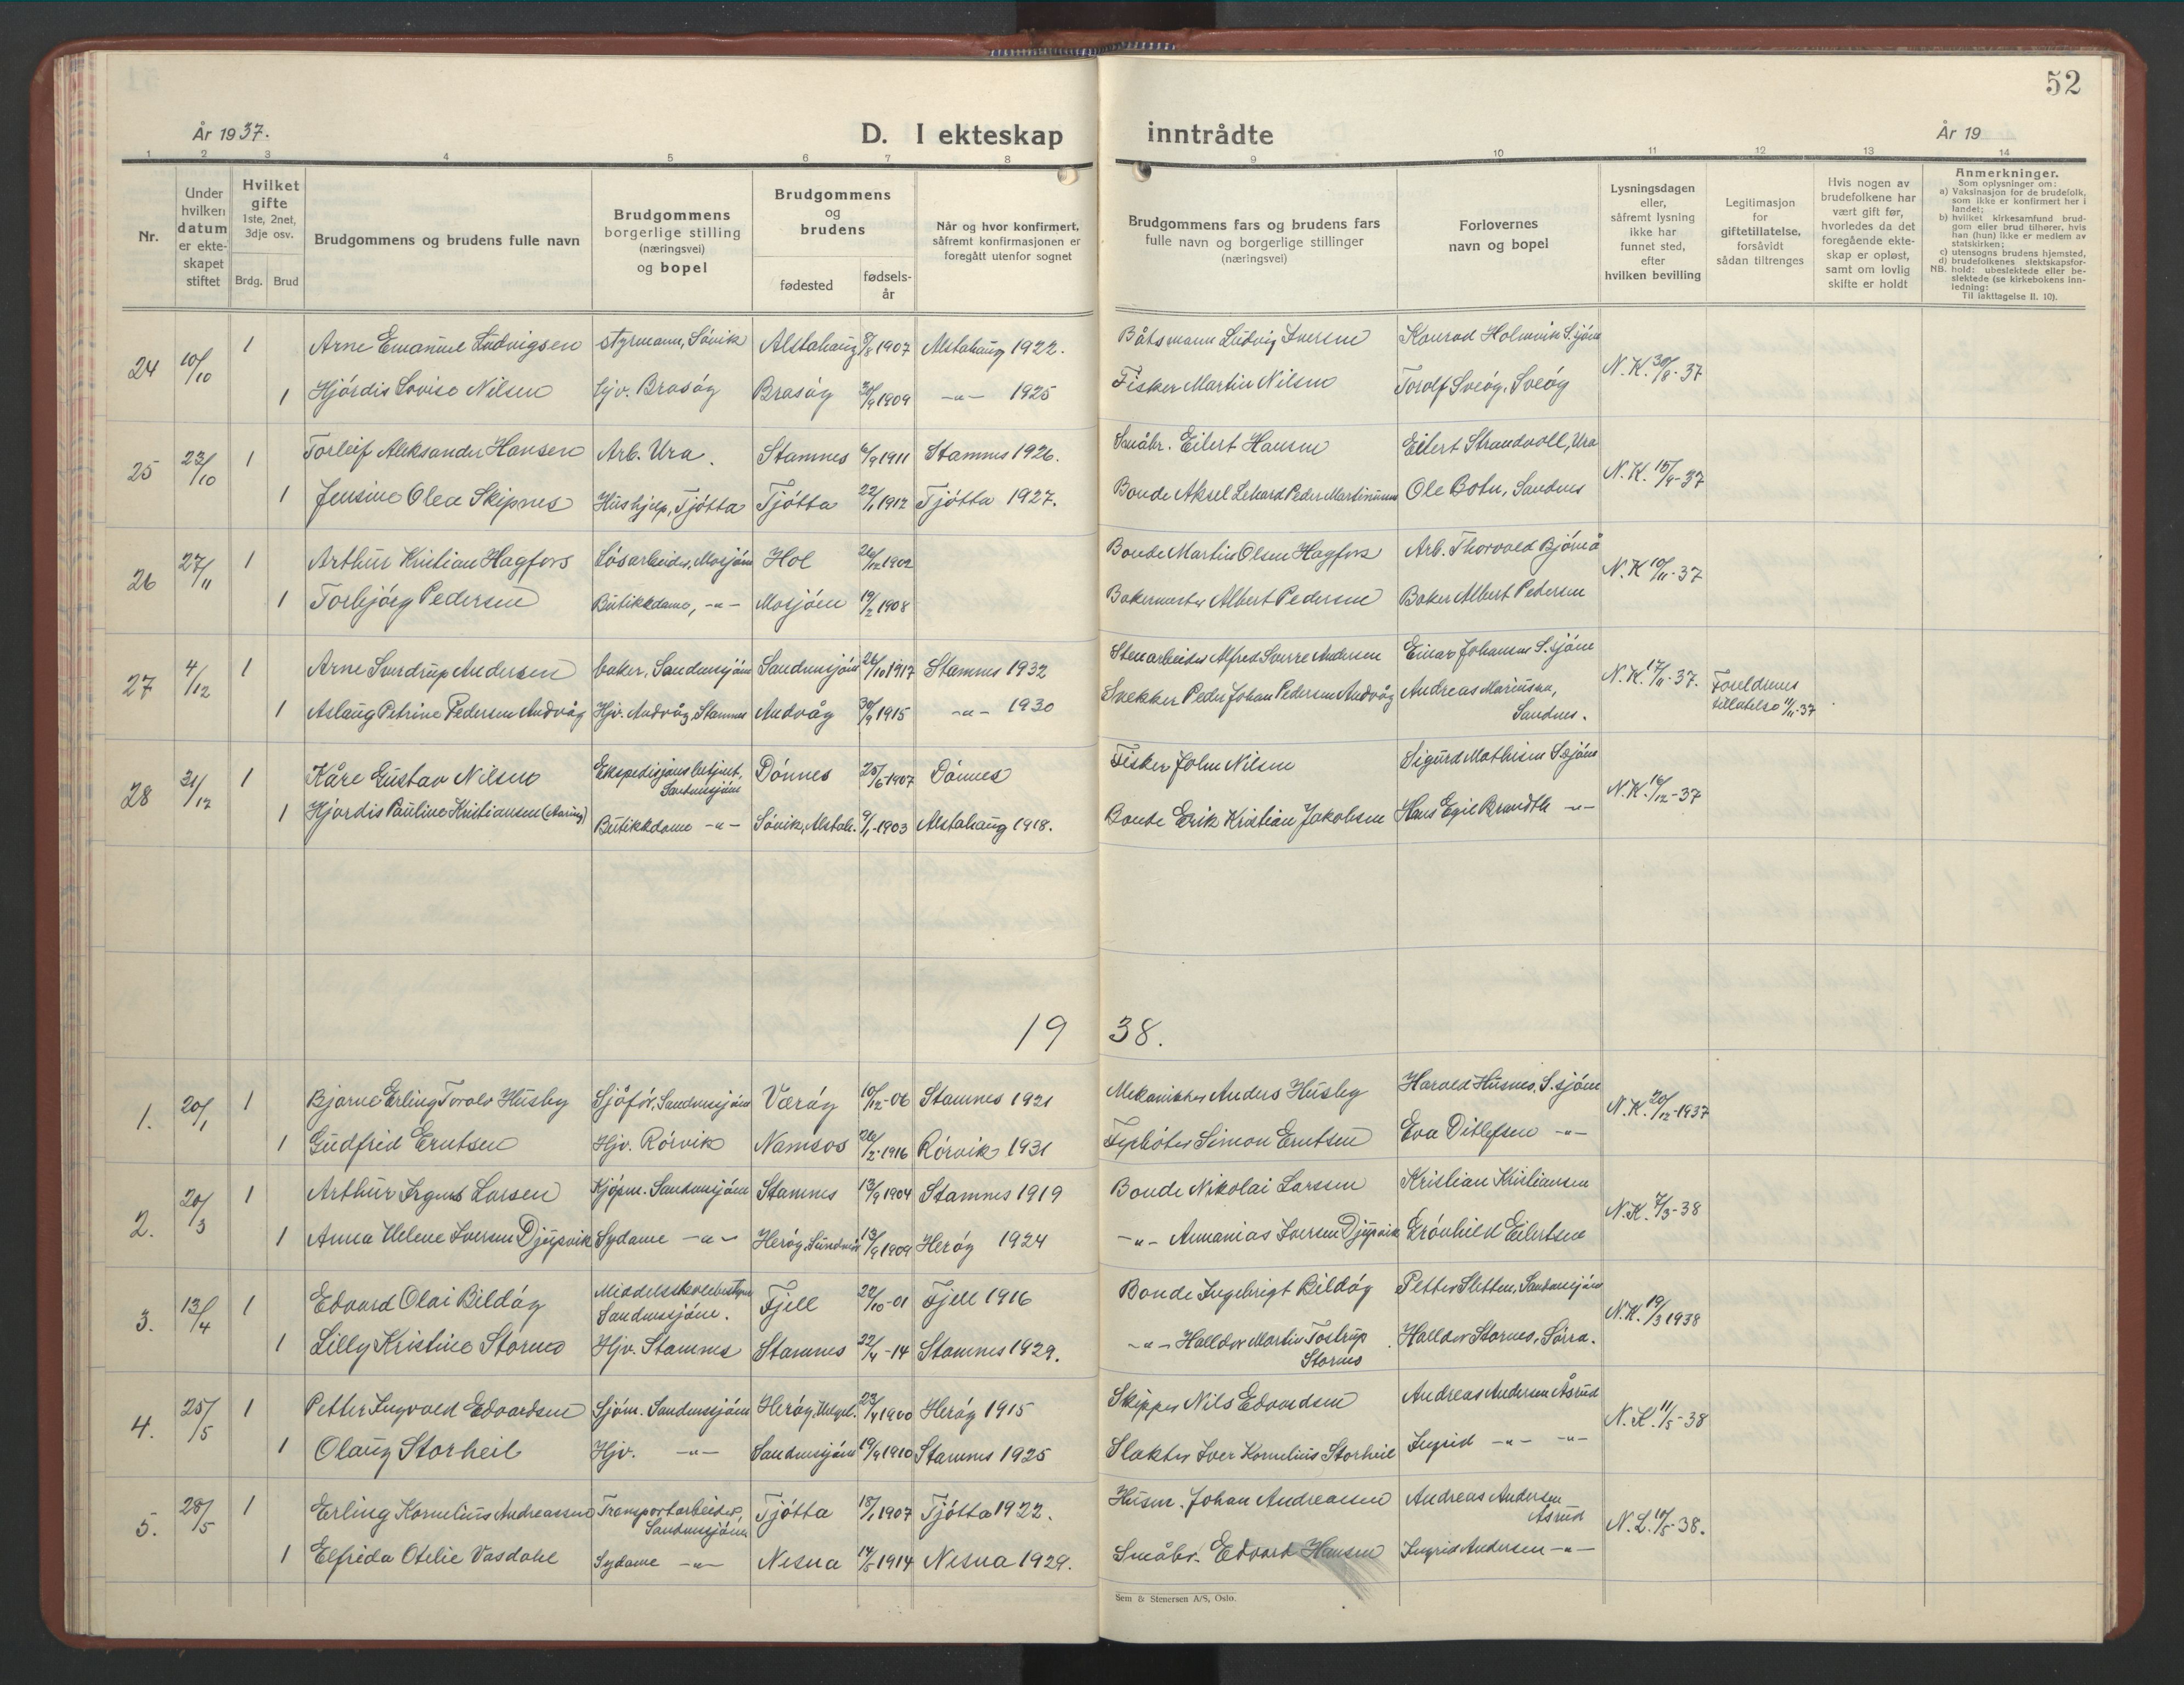 52
År 1937.
D. I ekteskap inntrådte
År 19
1 2 3 4 5 6 7 8 9 10 11 12 13 14
Nr.
Under hvilken datum er ekteskapet stiftet
Hvilket gifte 1ste, 2net, 3dje osv.
Brdg. Brud
Brudgommens og brudens fulle navn
Brudgommens borgerlige stilling (næringsvei) og bopel
Brudgommens og brudens
fødested
fødselsår
Når og hvor konfirmert, såfremt konfirmasjonen er foregått utenfor sognet
Brudgommens fars og brudens fars fulle navn og borgerlige stillinger (næringsvei)
Forlovernes navn og bopel
Lysningsdagen eller, såfremt lysning ikke har funnet sted, efter hvilken bevilling
Legitimasjon for giftetillatelse, forsåvidt sådan tiltrenges
Hvis nogen av brudefolkene har vært gift før, hvorledes da det foregående ekteskap er opløst, samt om lovlig skifte er holdt
Anmerkninger.
Som oplysninger om:
a) Vaksinasjon for de brudefolk, som ikke er konfirmert her i landet;
b) hvilket kirkesamfund brudgom eller brud tilhører, hvis han (hun) ikke er medlem av statskirken;
c) utensogns brudens hjemsted,
d) brudefolkenes slektskapsforhold: ubeslektede eller beslektede (se kirkebokens innledning:
NB.
Til iakttagelse II. 10).
24 10/10 1 Arne Emanuel Ludvigsen styrmann, Søvik Alstahaug 8/8 1907 Alstahaug 1922. Båtsmann Ludvig Iversen Konrad Holmvik S.sjøen N.K. 30/8-37
1 Hjørdis Lovise Nilsen hjv. Brasøy Brasøy 20/9 1909 -"- 1925 Fisker Martin Nilsen Torolf Sveøy, Sveøy
25 23/10 1 Torleif Aleksander Hansen Arb. Ura. Stamnes 6/9 1911 Stamnes 1926. Småbr. Eilert Hansen Eilert Strandvoll, Ura N.K. 15/9-37
1 Jensine Olea Skipnes Hushjelp, Tjøtta Tjøtta 22/1 1912 Tjøtta 1927. Bonde Aksel Lehard Peder Martinussen Ole Botn, Sandnes
26 27/11 1 Arthur Kristian Hagfors Løsarbeider, Mosjøen Hol 26/12 1902 Bonde Martin Olsen Hagfors Arb. Thorvald Bjørnå N.K 10/11-37
1 Torbjørg Pedersen Butikkdame, -"- Mosjøen 19/2 1908 Bakermester Albert Pedersen Baker Albert Pedersen
27 4/12 1 Arne Sverdrup Andersen baker, Sandnessjøen Sandnessjøen 26/10 1917 Stamnes 1932 Stenarbeider Alfred Sverre Andersen Einar Johansen S.sjøen N.K. 17/11-37. Foreldrenes
1 Aslaug Petrine Pedersen Andvåg Hjv. Andvåg, Stamnes Andvåg 30/9 1915 -"- 1930 Snekker Peder Johan Pedersen Andvåg Andreas Mariussen, Sandnes. tillatelse 11/11-37
28 31/12 1 Kåre Gustav Nilsen Ekspedisjonsbetjent, Sandnessjøen Dønnes 25/6-1907 Dønnes Fisker John Nilsen Sigurd Mathisen S.sjøen N.K. 16/12-37
1 Hjørdis Pauline Kristiansen Butikkdame -"- Søvik, Alstah. 9/1-1903 Alstahaug 1918. Bonde Erik Kristian Jakobsen Hans Egil Brandth -"-
19 38.
1. 20/1 1 Bjarne Erling Torolv Husby Sjåfør, Sandnessjøen Værøy 10/12-06 Stamnes 1921 Mekaniker Anders Husby Harald Husnes, S.sjøen N.K. 20/12-1937
1 Gudfrid Erntsen Hjv. Rørvik Namsos 26/2-1916 Rørvik 1931 Fyrbøter Simon Erntsen Eva Ditlefsen -"-
2. 20/3 1 Arthur Irgens Larsen Kjøpm. Sandnessjøen Stamnes 13/9 1904 Stamnes 1919 Bonde Nikolai Larsen Kristian Kristiansen N.K. 7/3-38
1 Anna Helene Iversen Djupvik Sydame -"- Herøy, Sundmør 13/9 1909 Herøy 1924 -"- Annanias Iversen Djupvik Grønhild Eilertsen
3. 13/4 1 Edvard Olai Bildøy Middelskolebestyrer Sandnessjøen. Fjell 22/10-01 Fjell 1916 Bonde Ingebrigt Bildøy Petter Sletten, Sandnessjøen N.K. 19/3 1938
1 Lilly Kristine Stornes Hjv. Stamnes Stamnes 22/4-14 Stamnes 1929. -"- Halldor Martin Tostrup Stornes Halldor Stornes, Sørra.
4. 25/5 1 Petter Ingvald Edvardsen Sjøm. Sandnessjøen Herøy, Helgel. 23/4 1900 Herøy 1915 Skipper Nils Edvardsen Andreas Andersen Åsrud N.K. 11/5-38
1 Olaug Storheil Hjv. -"- Sandnessjøen 19/9 1910 Stamnes 1925 Slakter Iver Kornelius Storheil Ingrid -"- -"-
5. 28/5 1 Erling Kornelius Andreassen Transportarbeider, Sandnessjøen Tjøtta 18/1 1907 Tjøtta 1922. Husm. Johan Andreassen Andreas Andersen Åsrud N.L. 10/5-38.
1 Elfrida Otelie Vasdahl Sydame -"- Nesna 14/5 1914 Nesna 1929. Småbr. Edvard Hansen Ingrid Andersen -"-
Sem & Stenersen A/S, Oslo.